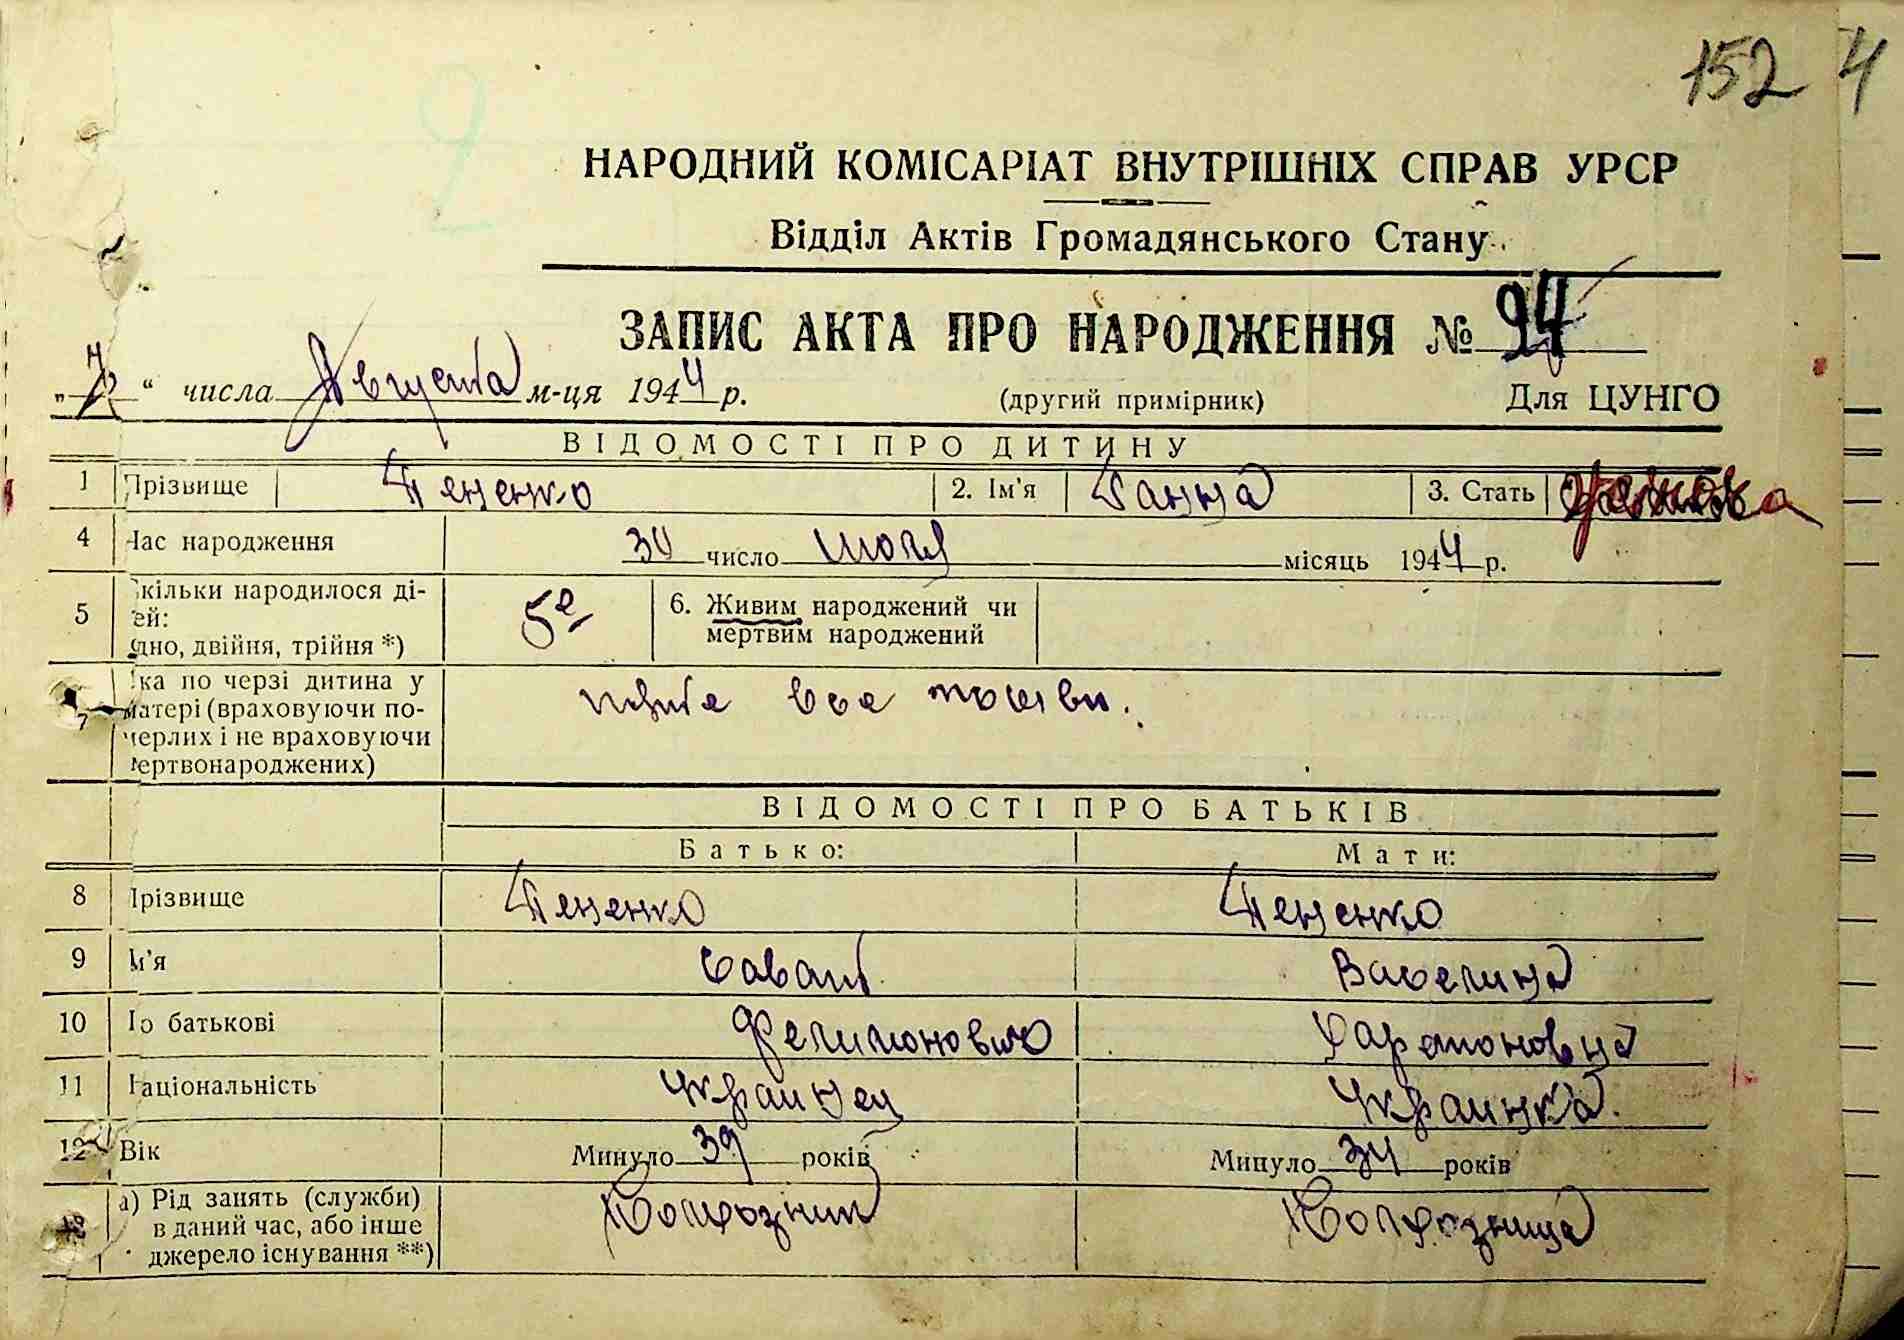 152 4
2
НАРОДНИЙ КОМІСАРІАТ ВНУТРІШНІХ СПРАВ УРСР
Відділ Актів Громадянського Стану
ЗАПИС АКТА ПРО НАРОДЖЕННЯ № 94
" " числа Августа м-ця 1944 р. (другий примірник) Для ЦУНГО
ВІДОМОСТІ ПРО ДИТИНУ
1 Прізвище 2. Ім'я Ганна 3. Стать
4 Час народження 30 число июля місяць 1944 р.
5 кільки народилося ді-
ей:
дно, двійня, трійня *) 5е 6. Живим народжений чи
мертвим народжений
7 ка по черзі дитина у
матері (враховуючи по-
мерлих і не враховуючи
мертвонароджених) пята вся
ВІДОМОСТІ ПРО БАТЬКІВ
Батько: Мати:
8 Прізвище
9 м'я Сават Василина
10 По батькові Филимонович Харитоновна
11 Національність Украинец Украинка.
12 Вік Минуло 39 років Минуло 34 років
13 а) Рід занять (служби)
в даний час, або інше
джерело існування **) Колхозник Колхозница